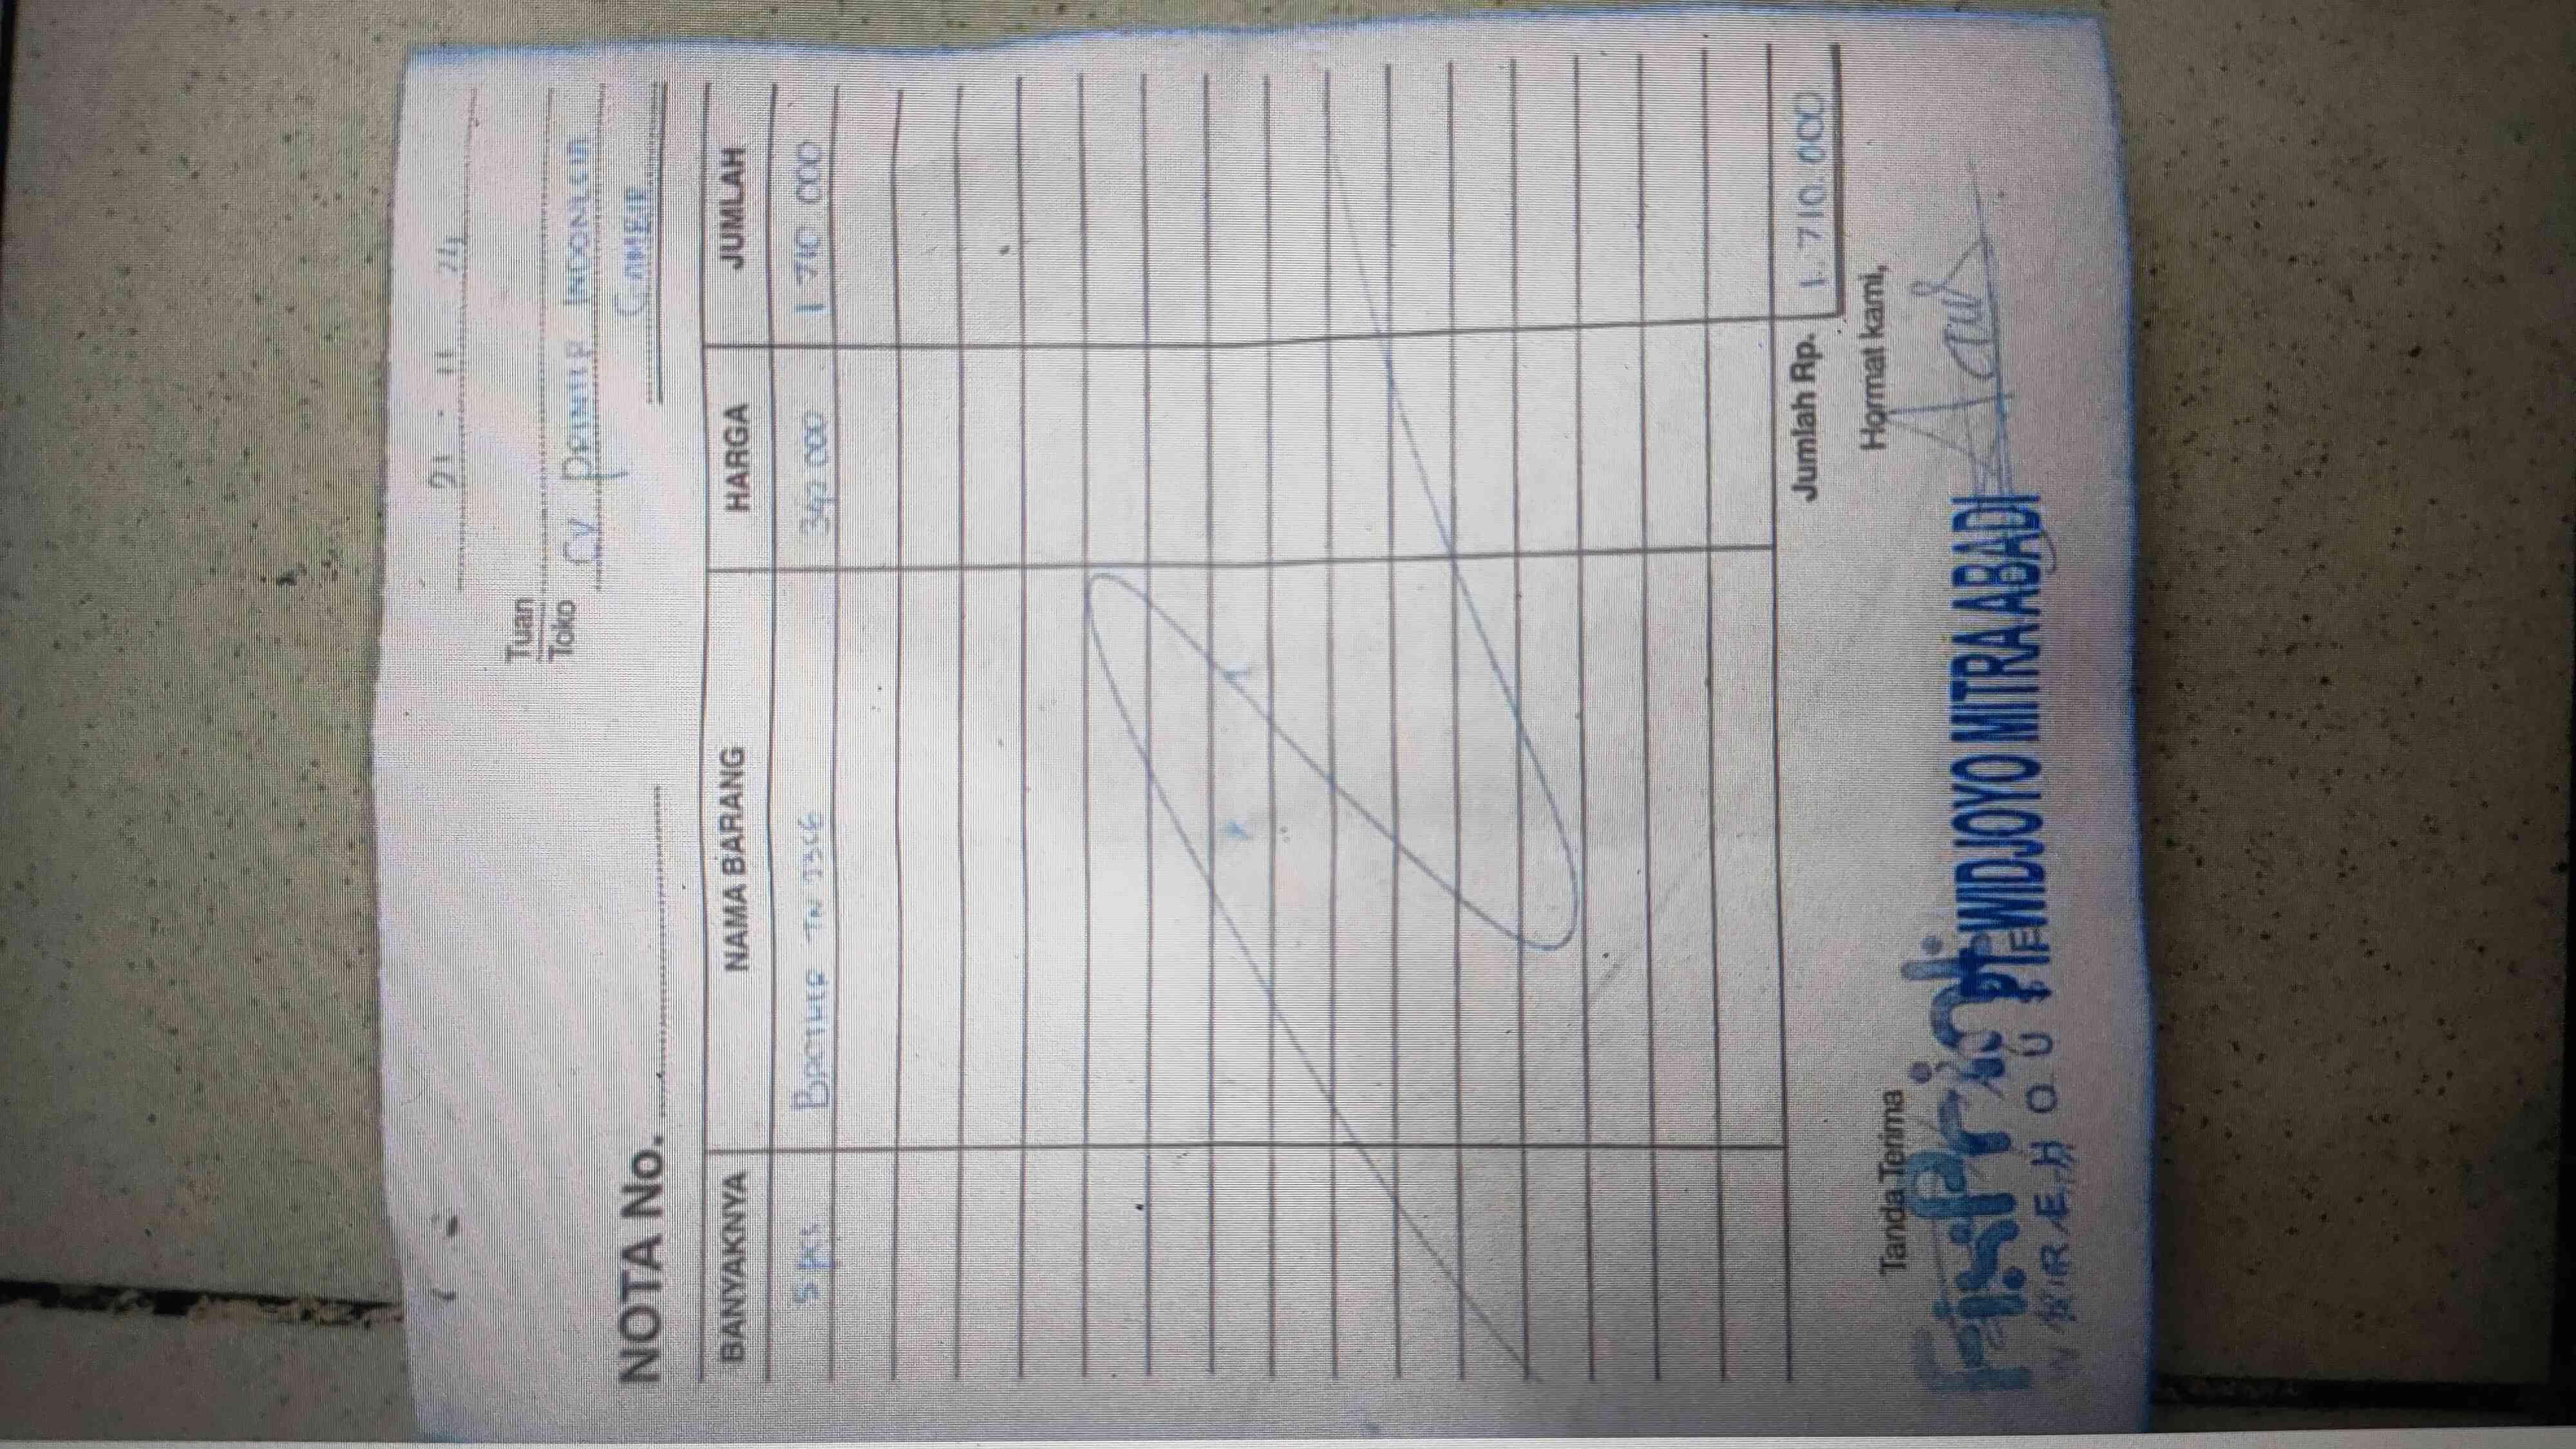 21 - 11 24
Tuan
Toko CV PRINTER INDONESIA
NOTA No.
BANYAKNYA NAMA BARANG HARGA JUMLAH
5 pcs BROTHER TN 2356 1 710 000
Jumlah Rp. 1.710.000
Tanda Terima Hormat kami,
FixPrint PT.WIDJOYO MITRA ABADI